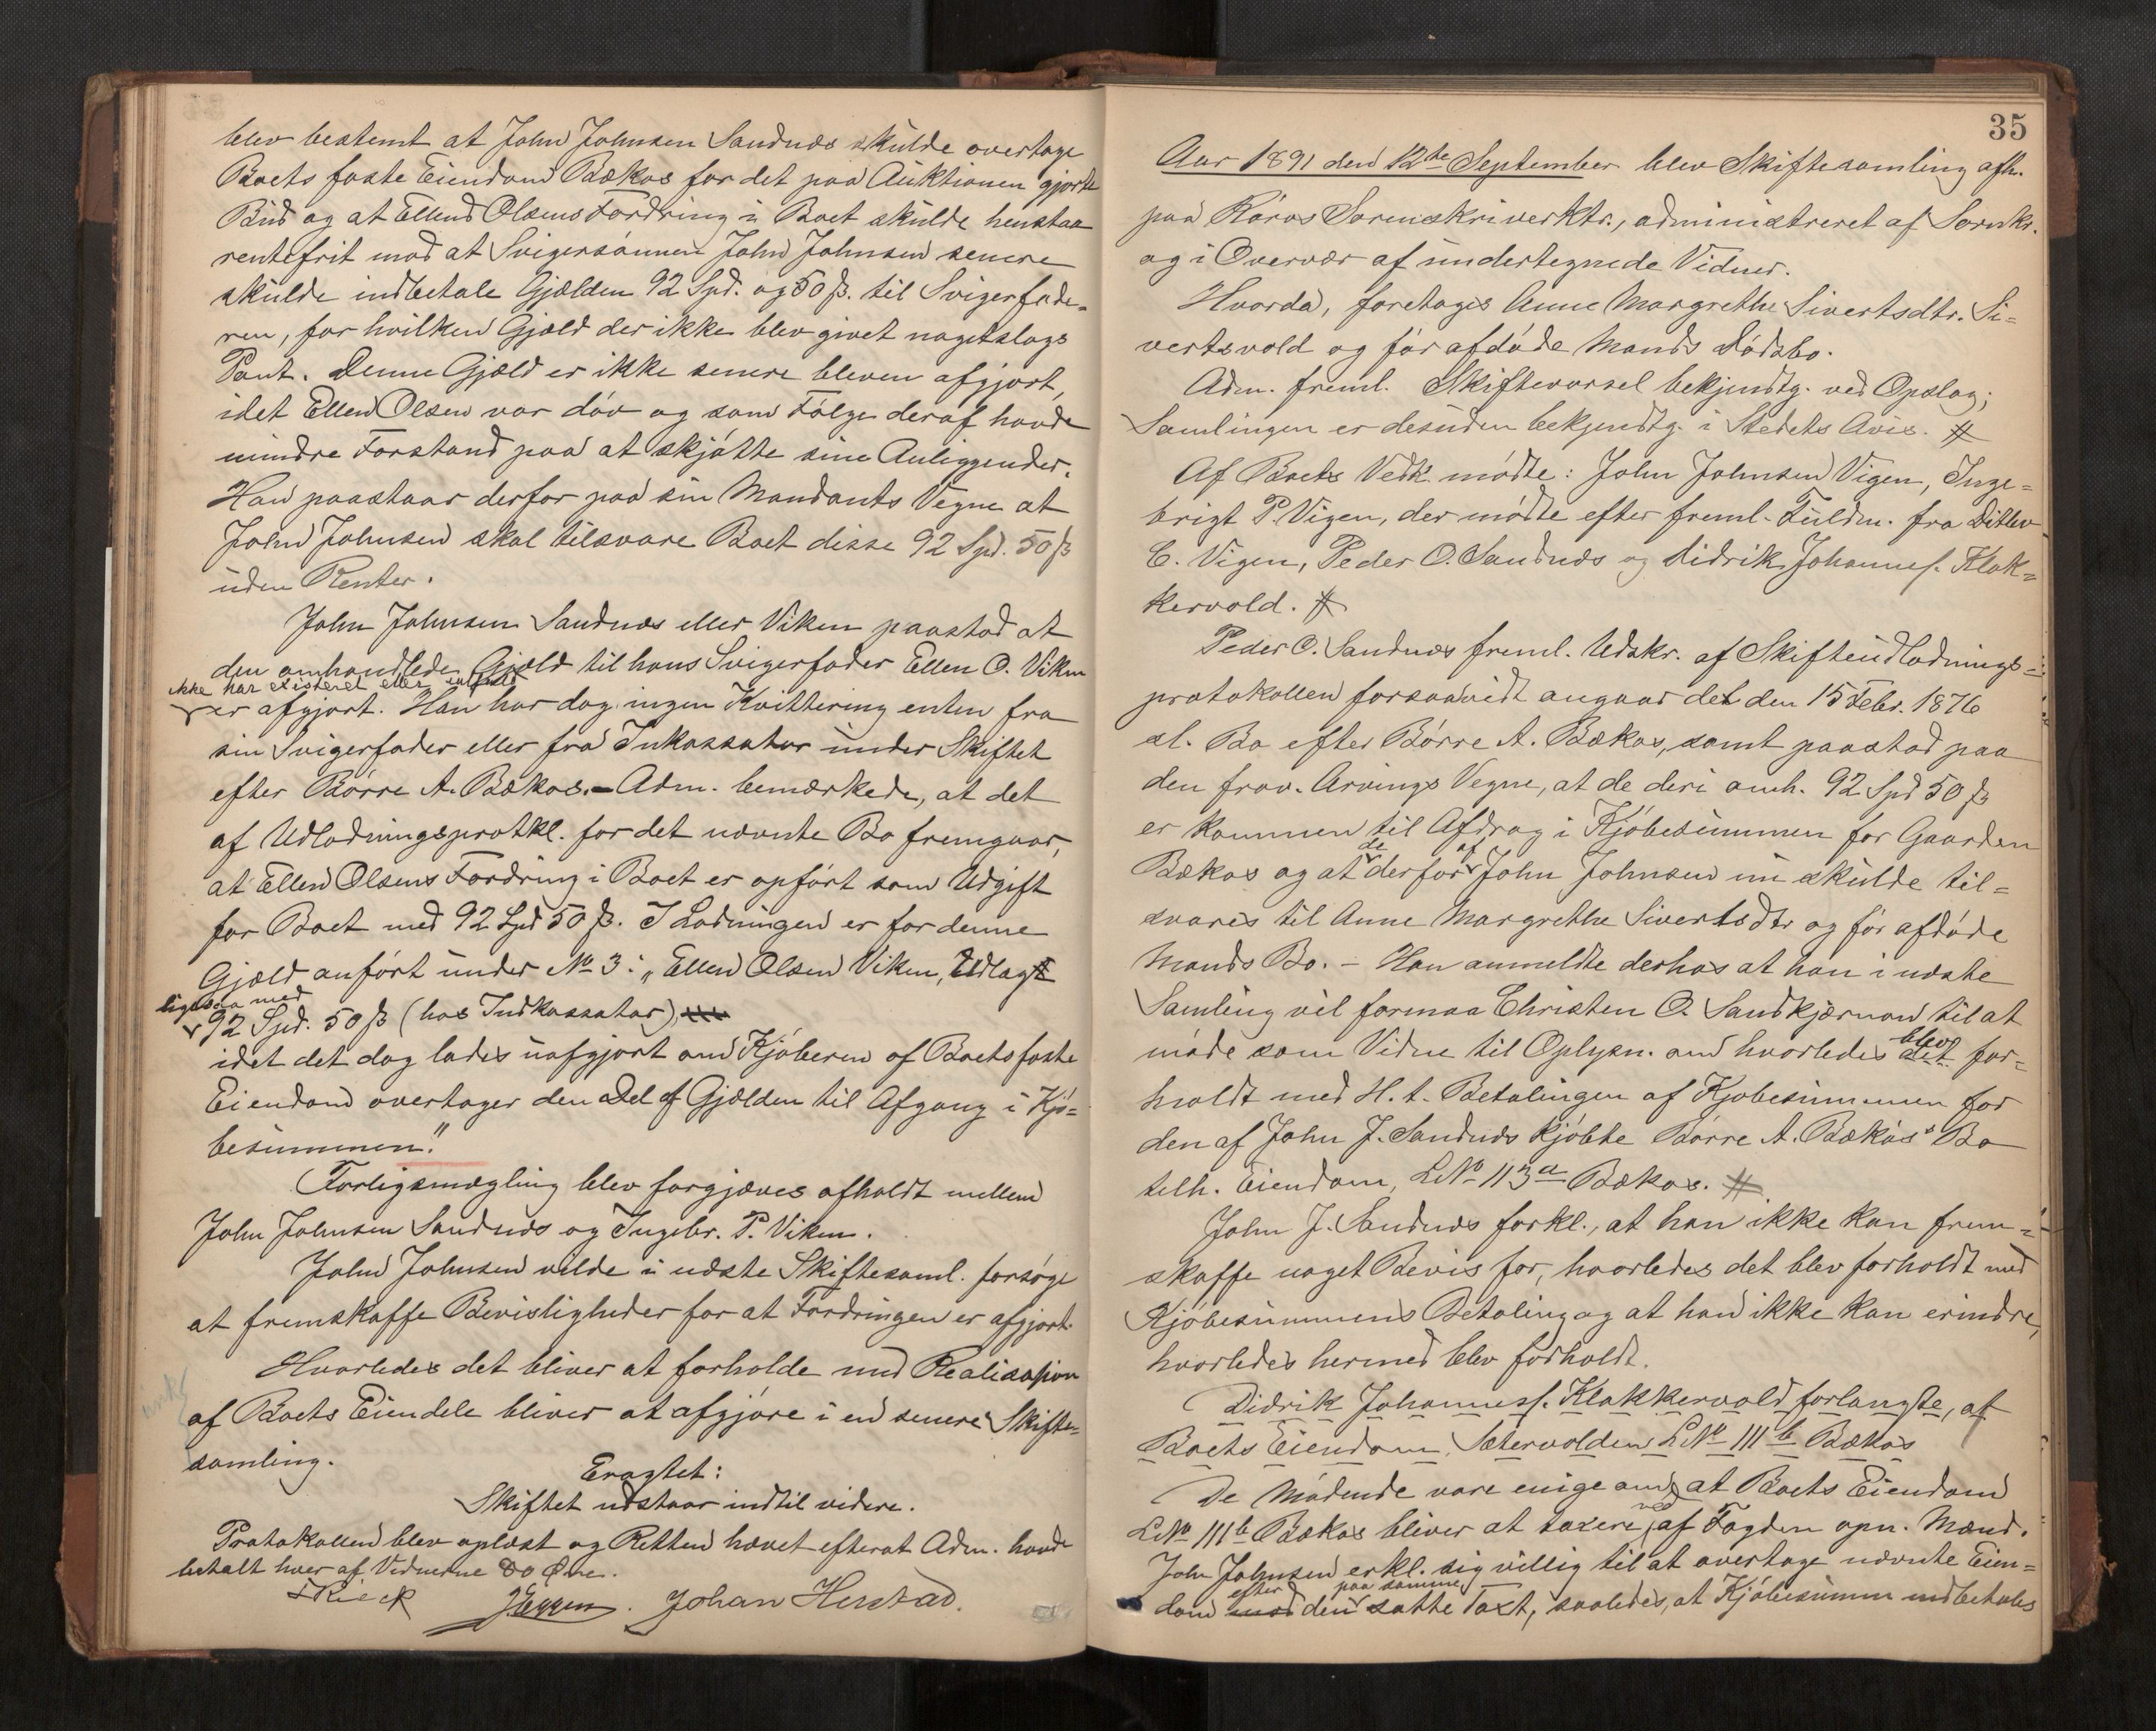 blev bestemt at John Johnsen Sandnæs skulde overtage
Boets faste Eiendom Bækos for det paa Auktionen gjorte
Bud og at Ellend Olsens Fordring i Boet skulde henstaa
rentefrit mod at Svigersønnen John Johnsen senere
skulde indbetale Gjælden 92 Spd. og 50 ß. til Svigerfade-
ren, for hvilken Gjæld der ikke blev givet nogetslags
Pant. Denne Gjæld er ikke senere bleven afgjort,
idet Ellen Olsen var døv og som Følge deraf havde
mindre Forstand paa at skjøtte sine Anliggender.
Han paastaar derfor paa sin Mandants Vegne at
John Johnsen skal tilsvare Boet disse 92 Spd. 50 ß
uden Renter.
John Johnsen Sandnæs eller Viken paastod at
den omhandlede Gjæld til hans Svigerfader Ellen O. Viken
ikke har existeret eller
er afgjort. Han har dog ingen Kvittering enten fra
sin Svigerfader eller fra Inkassator under Skiftet
efter Børre A. Bækos. - Adm. bemærkede, at det
af Udlodningsprotkl. for det nævnte Bo fremgaar,
at Ellen Olsens Fordring i Boet er opført som Udgift
for Boet med 92 Spd 50 ß. I Lodningen er for denne
Gjæld anført under No 3: „Ellen Olsen Viken, Udlagt
ligesaa med
92 Spd. 50 ß (hos Indkassator)
idet det dog lades uafgjort om Kjøberen af Boets faste
Eiendom overtager den Del af Gjælden til Afgang i Kjø-
besummen."
Forligsmægling blev forgjæves afholdt mellem
John Johnsen Sandnæs og Ingebr. P. Viken.
John Johnsen vilde i næste Skiftesaml. forsøge
at fremskaffe Bevisligheder for at Fordringen er afgjort.
Hvorledes det bliver at forholde med Realisation
af Boets Eiendele bliver at afgjøre i en senere Skifte-
samling.
Eragtet:
Skiftet udstaar indtil videre.
Protokollen blev oplæst og Retten hævet efterat Adm. havde
betalt hver af Vidnerne 80 Øre.
Rieck JEggen. Johan Herstad.
35
Aar 1891 den 12te September blev Skiftesamling afh.
paa Røros Sorenskriverktr., administreret af Sornkr.
og i Overvær af undertegnede Vidner.
Hvorda, foretoges Anne Margrethe Sivertsdtr. Si-
vertsvold og før afdøde Mands Dødsbo.
Adm. freml. Skiftevarsel bekjendtg. ved Opslag;
Samlingen er desuden bekjendtg. i Stedets Avis. #
Af Boets Vedk. mødte: John Johnsen Vigen, Inge-
brigt P. Vigen, der mødte efter freml. Fuldm. fra Ditlev
C. Vigen, Peder O. Sandnæs og Didrik Johannes. Klok-
kervold. #
Peder O. Sandnæs freml. Udskr. af Skifteudlodnings-
protokollen forsaavidt angaar det den 15 Febr. 1876
sl. Bo efter Børre A. Bækos, samt paastod paa
den frav. Arvings Vegne, at de deri omh. 92 Spd 50 ß
er kommen til Afdrag i Kjøbesummen for Gaarden
Bækos og at de derfor af John Johnsen nu skulde til-
svares til Anne Margrethe Sivertsdtr og før afdøde
Mands Bo. - Han anmeldte derhos at han i næste
Samling vil formaa Christen O. Sandkjærnan til at
møde som Vidne til Oplysn. om hvorledes det blev for-
holdt med H. t. Betalingen af Kjøbesummen for
den af John J. Sandnæs kjøbte Børre A. Bækos's Bo
tilh. Eiendom, LNo 113a Bækos. #
John J. Sandnæs forkl., at han ikke kan frem-
skaffe noget Bevis for, hvorledes det blev forholdt med
Kjøbesummens Betaling og at han ikke kan erindre,
hvorledes hermed blev forholdt.
Didrik Johanness. Klokkervold forlangte, at
Boets Eiendom, Sætervolden LNo 111b Bækos
De Mødende vare enige om, at Boets Eiendom
LNo 111b Bækos bliver at taxere ved af Fogden opn. Mænd.
John Johnsen erkl. sig villig til at overtage nævnte Eien-
dom efter den paa samme satte Taxt, saaledes, at Kjøbesummen indbetales